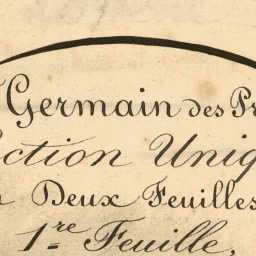 Germain des Pr
ction Uniq
Deux Feuilles
1.re Feuille,